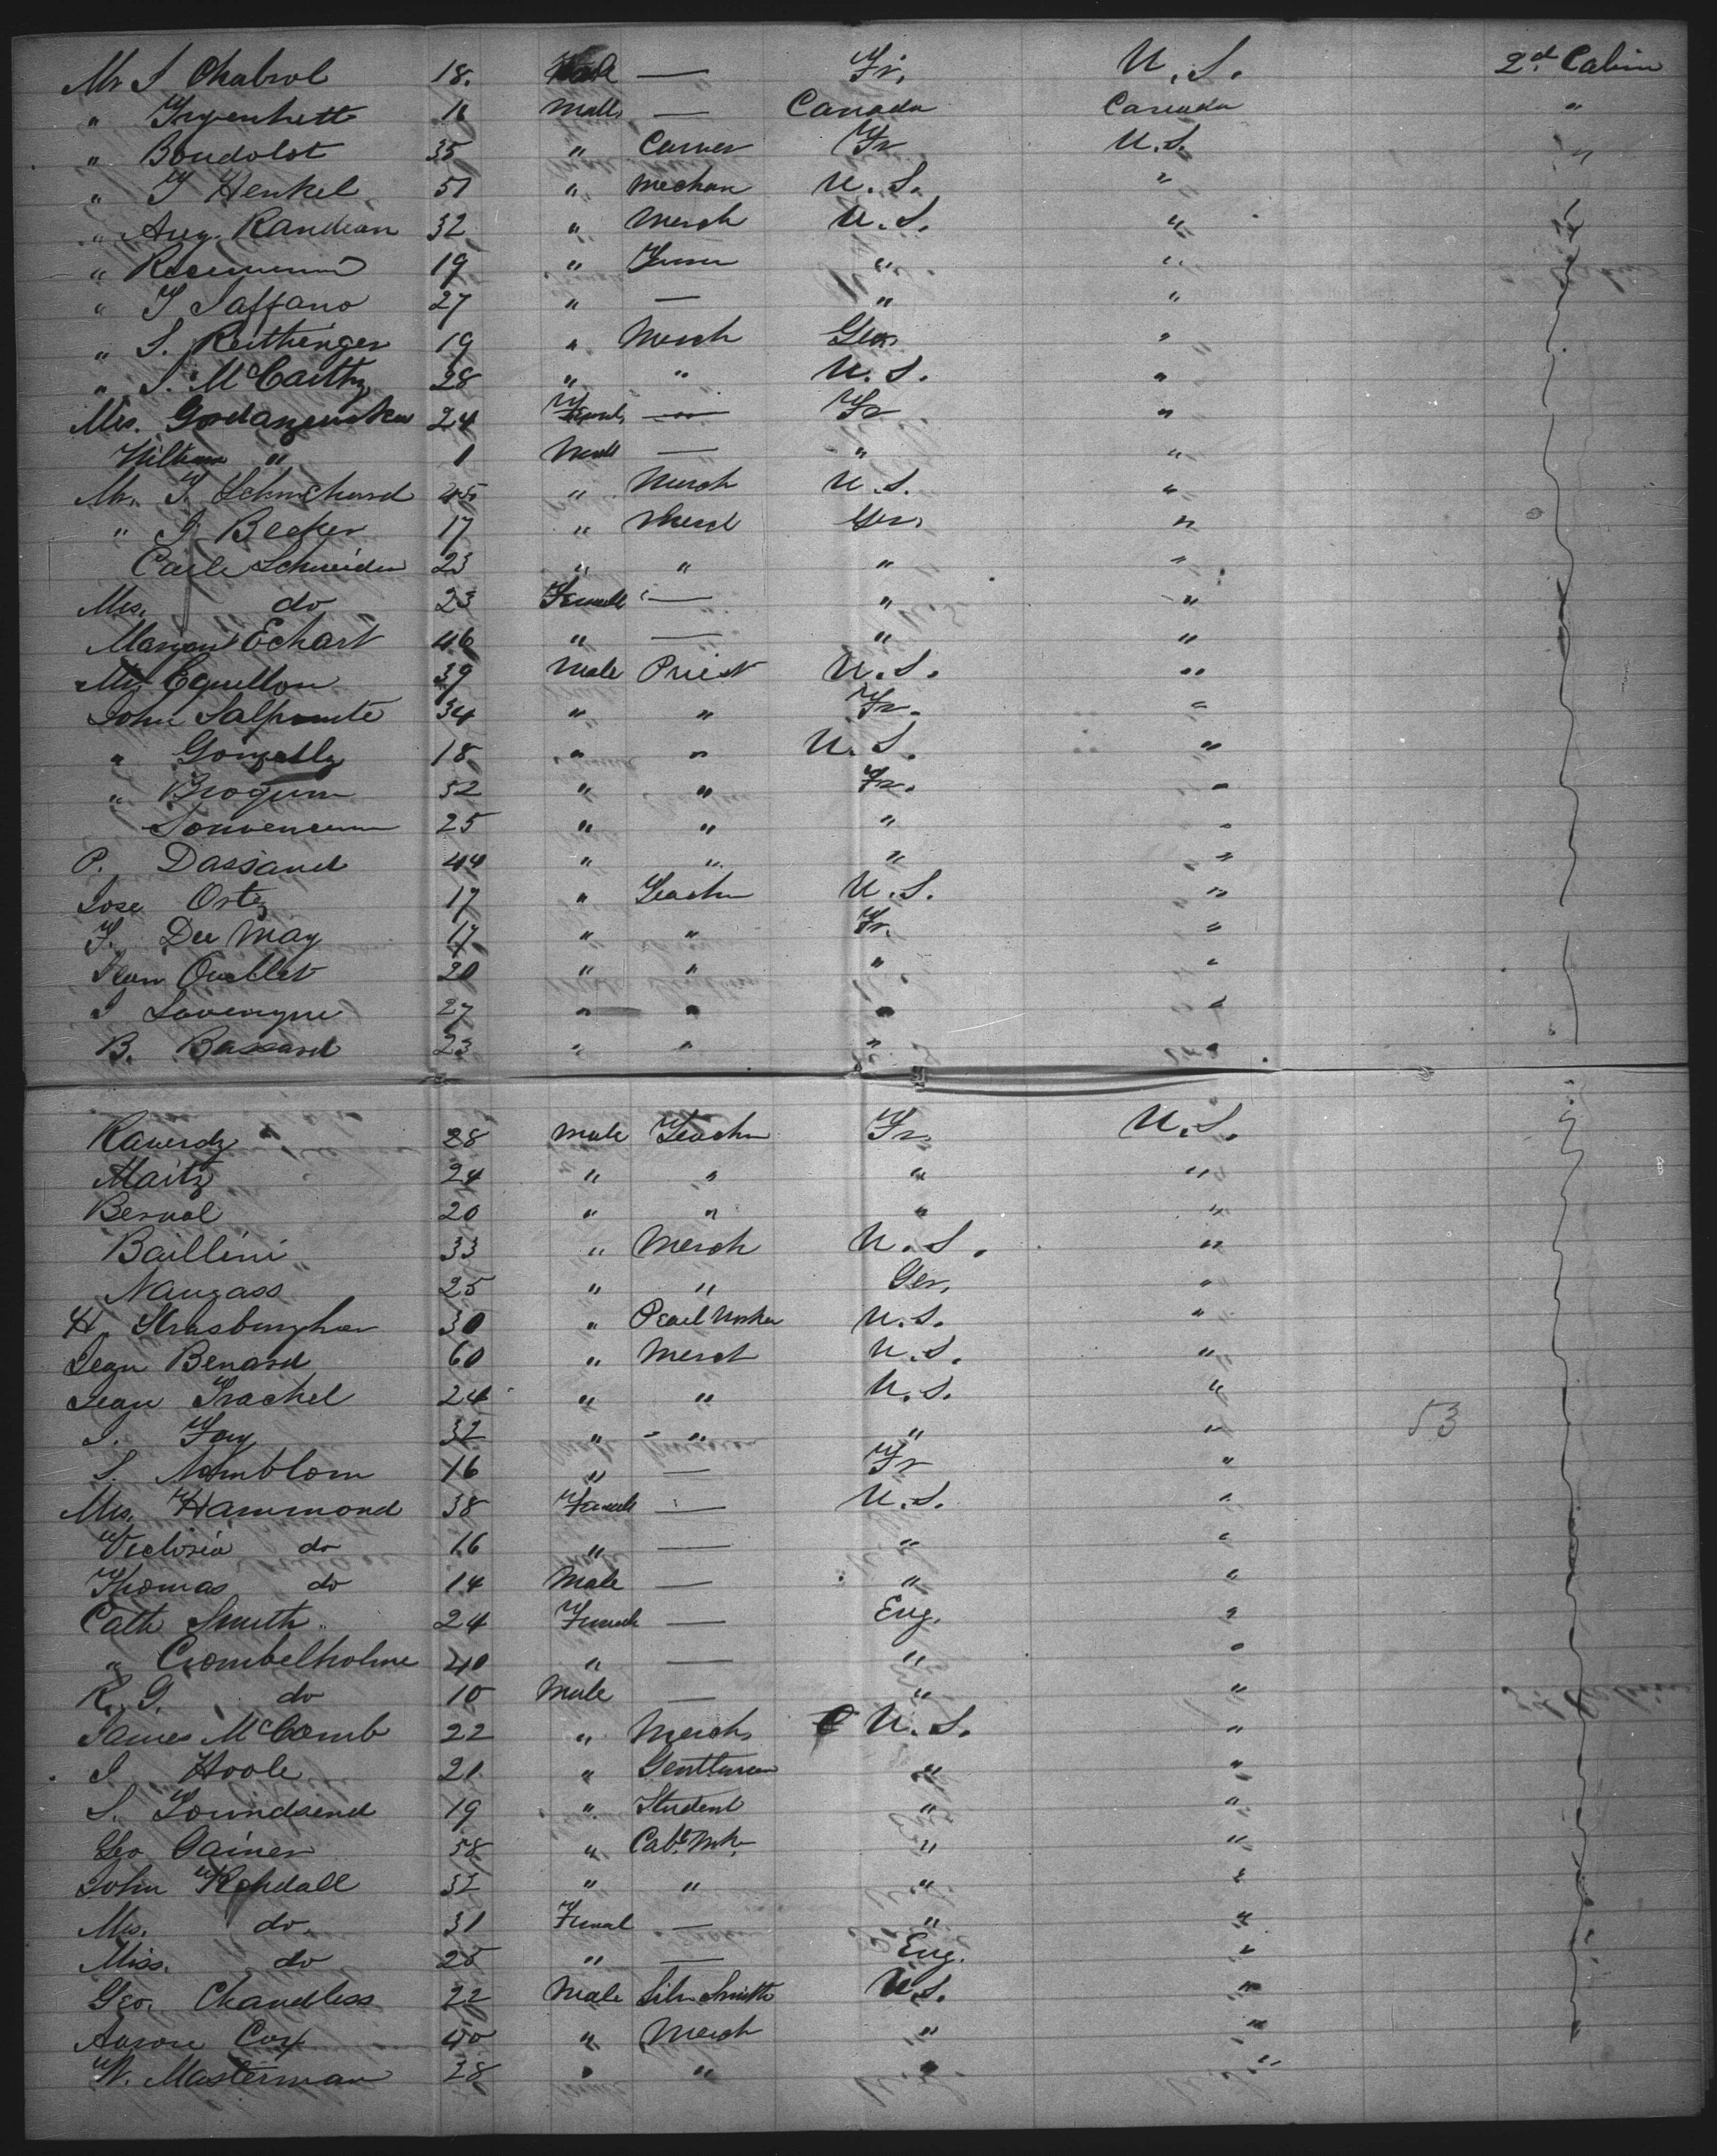 Mr J Chabrol 18. Male — Fr. U. S. 2d. Cabin
" 16 Male — Canada Canada "
" Boudolot 35 " Carver Fr U. S. "
" J Henkel 51 " Mechan U. S. "
" Aug. Randian 32 " Merch U. S. "
" 19 " " "
" J Saffano 27 " — " "
" S. Reithinger 19 " Merch Ger "
" J. McCarthy 28 " " U. S. "
Mrs. 24 Female — Fr "
William " 1 Male — " "
Mr. J. Schuchard 45 " Merch U. S. "
" J Becker 17 " Merch Ger "
Carl Schneider 23 " " " "
Mrs. do 23 Female — " "
Margant Echart 46 " — " "
Mr Equillon 39 Male Priest U. S. "
John Salpointe 34 " " Fr. "
" 18 " " U. S. "
" Brogum 52 " " Fr. "
25 " " " "
P. Dassaud 44 " " " "
Jose Ortz 17 " Teacher U. S. "
F. Du May 17 " " Fr. "
Jean Ouellet 20 " " " "
J Lavergne 27 " " " "
B. Bassard 23 " " " "
28 Male Teacher Fr. U. S.
Maitz 24 " " " "
Bernal 20 " " " "
Baillini 33 " Merch U. S. "
Naugass 25 " " Ger. "
H. Strasburgher 30 " Pearl Worker U. S. "
Jean Benard 60 " Merch U. S. "
Jean Trachel 24 " " U. S. "
J. Foy 32 " " " " 53
S. Nomblom 16 " — Fr "
Mrs. Hammond 38 Female — U. S. "
Victoria do 16 " — " "
Thomas do 14 Male — " "
Cath Smith 24 Female — Eng. "
" Crombelholme 40 " — " "
R. G. do 10 Male — " "
James McComb 22 " Merch U. S. "
J Hoole 21 " Gentleman " "
S. Towndsend 19 " Student " "
Geo Gainer 58 " Cabt Mkr. " "
John Kendall 32 " " " "
Mrs. do. 31 Femal — " "
Miss. do 25 " — Eng. "
Geo. Chandless 22 Male Silv Smith U. S. "
Aurore Cox 40 " Merch " "
W. Masterman 28 " " " "